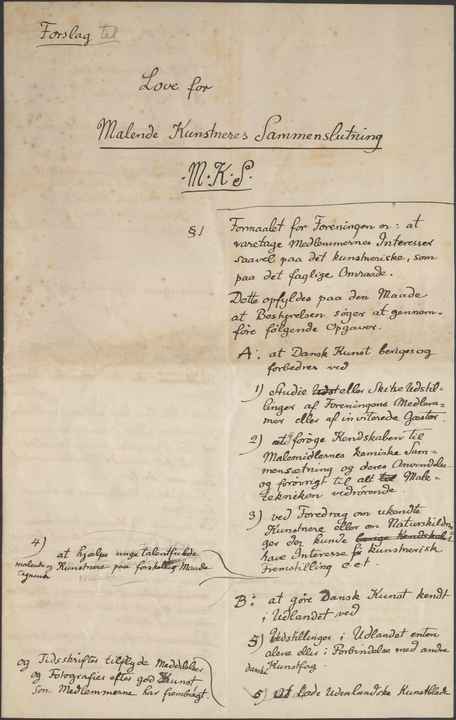 Forslag til
Love for
Malende Kunstneres Sammenslutning
·M·K·S·
§1 Formaalet for Foreningen er: at
varetage Medlemmernes Interesser
saavel paa det kunstneriske, som
paa det faglige Omraade.
Dette opfyldes paa den Maade
at Bestyrelsen søger at gennem-
føre følgende Opgaver.
A: at Dansk Kunst beriges og
forbedres ved
1) Studie eller Skitse Udstil-
linger af Foreningens Medlem-
mer eller af inviterede Gæster.
2) at forøge Kendskaben til
Malemidlernes kemiske Sam-
mensætning og deres Anvendelse
og forøvrigt til alt Male-
tekniken vedrørende
3) ved Foredrag om ukendte
Kunstnere eller om Naturskildrin-
ger der kunde
have Interesse for kunstnerisk
Fremstilling o et
4) at hjælpe unge talentfulde
malende og
Kunstnere paa forskellig Maade
B: at gøre Dansk Kunst kendt
i Udlandet ved
5) Udstillinger i Udlandet enten
alene eller i Forbindelse med andre
danske Kunstfag.
og Tidsskrifter tilflyde Meddelelser
og Fotografier efter god Kunst
som Medlemmerne har frembragt.
6) at lade Udenlandske Kunstblade